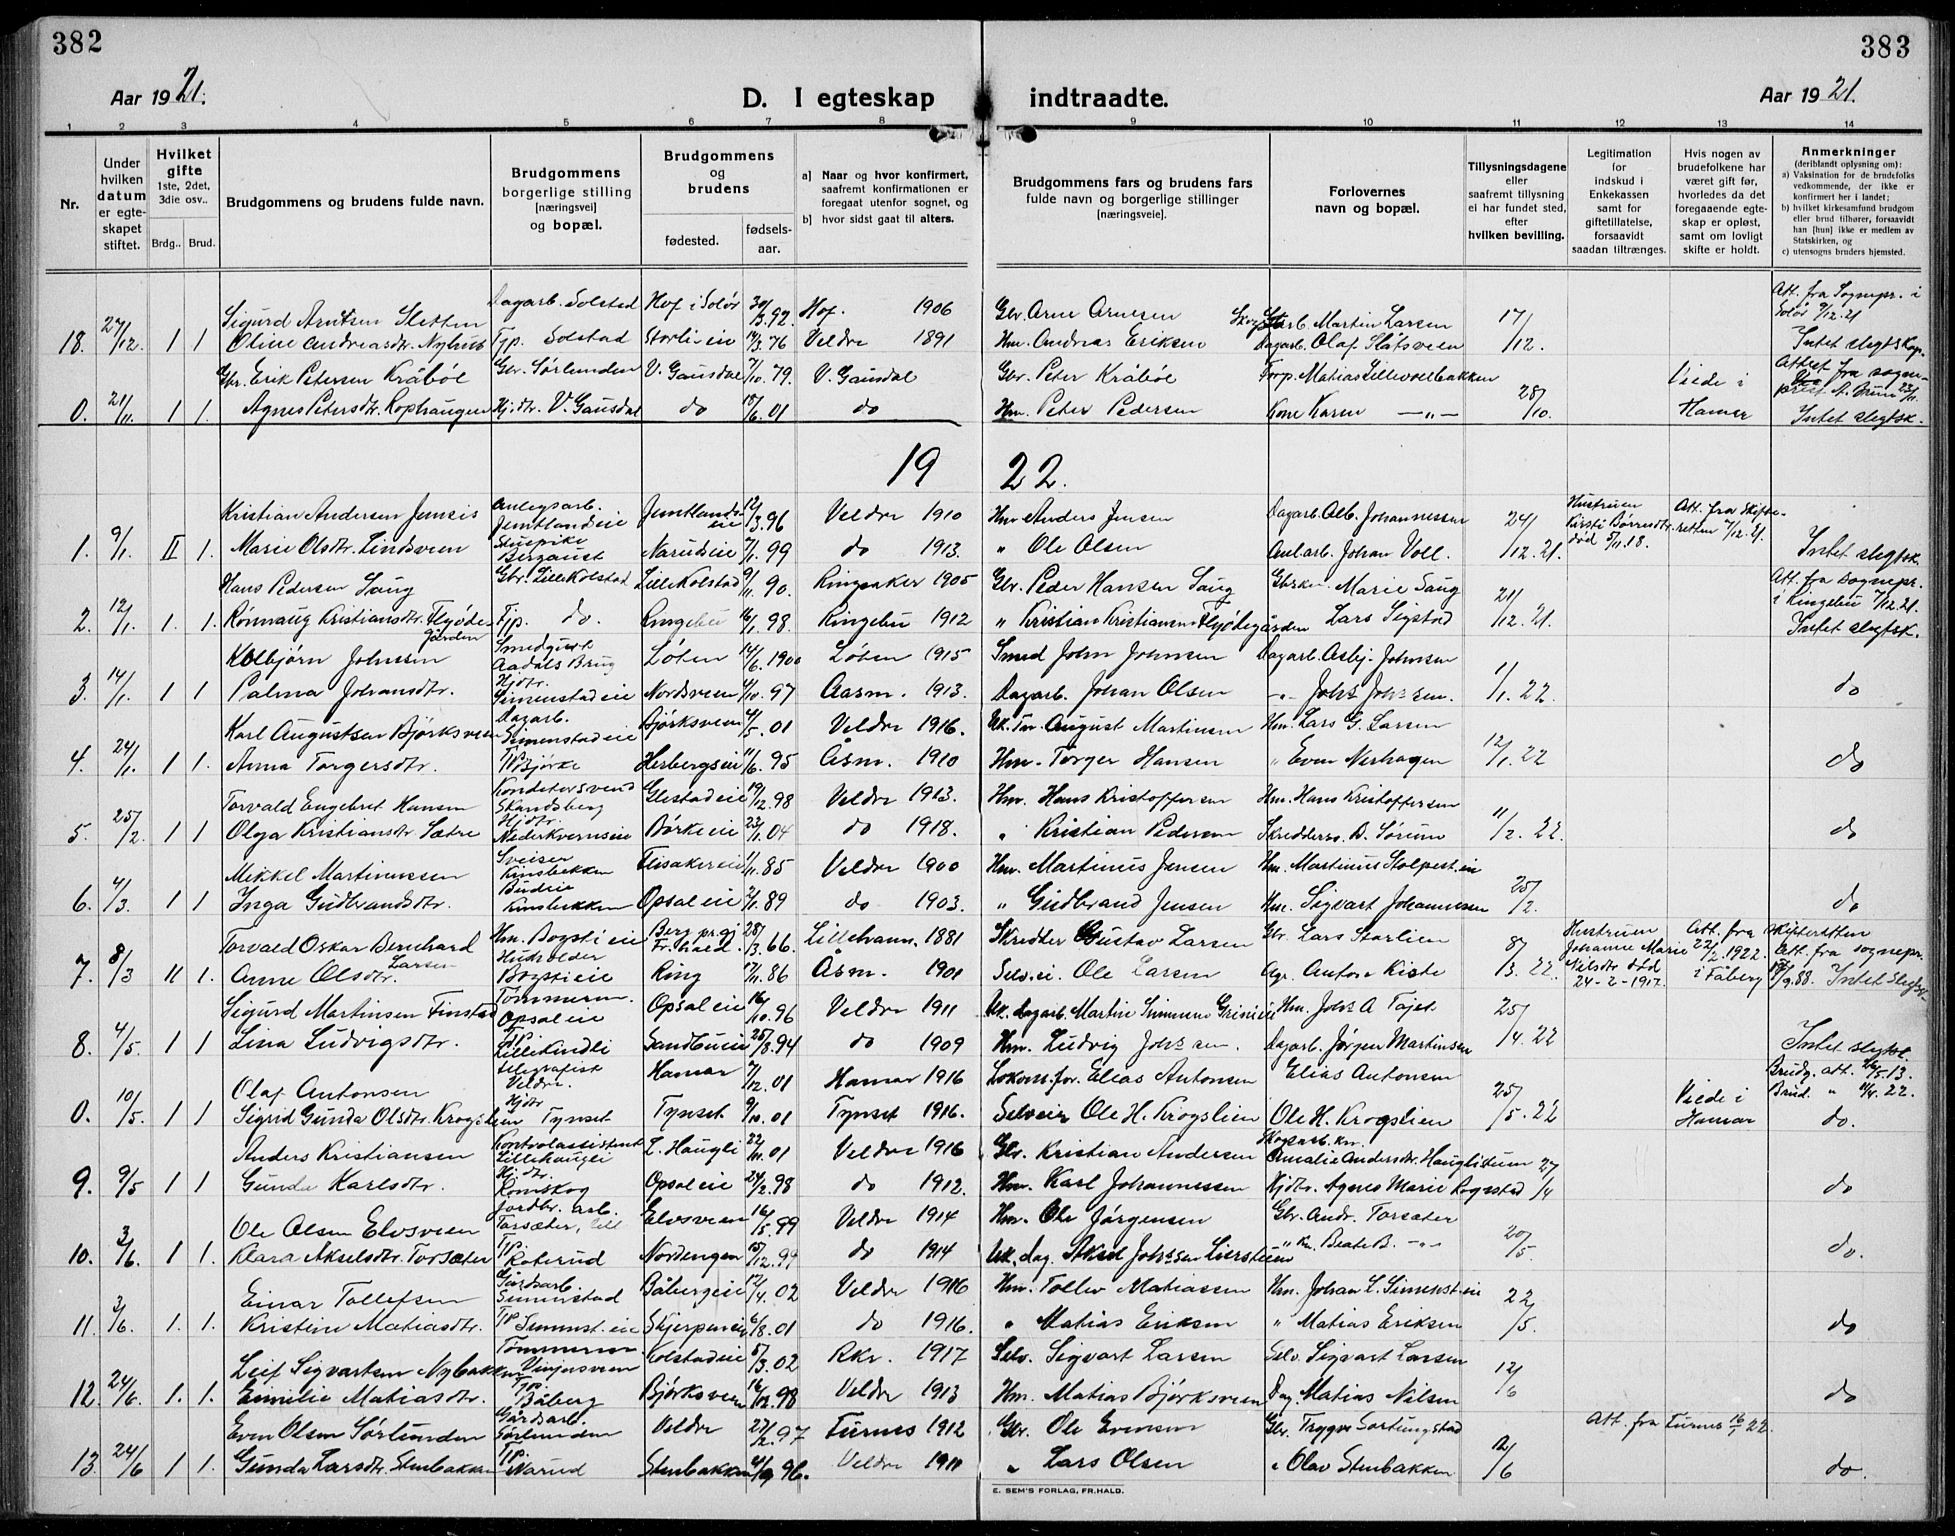 382
383
Aar 1921.
D. I egteskap indtraadte.
Aar 1921.
1 2 3 4 5 6 7 8 9 10 11 12 13 14
Nr.
Under hvilken datum er egteskapet stiftet.
Hvilket gifte 1ste, 2det, 3die osv..
Brdg.. Brud.
Brudgommens og brudens fulde navn.
Brudgommens borgerlige stilling [næringsvei] og bopæl.
Brudgommens og brudens
fødested.
fødselsaar.
a) Naar og hvor konfirmert, saafremt konfirmationen er foregaat utenfor sognet, og
b) hvor sidst gaat til alters.
Brudgommens fars og brudens fars fulde navn og borgerlige stillinger [næringsveie].
Forlovernes navn og bopæl.
Tillysningsdagene eller saafremt tillysning ei har fundet sted, efter hvilken bevilling.
Legitimation for indskud i Enkekassen samt for giftetillatelse, forsaavidt saadan tiltrænges.
Hvis nogen av brudefolkene har været gift før, hvorledes da det foregaaende egteskap er opløst, samt om lovligt skifte er holdt.
Anmerkninger (deriblandt oplysning om):
a) Vaksination for de brudefolks vedkommende, der ikke er konfirmert her i landet;
b) hvilket kirkesamfund brudgom eller brud tilhører, forsaavidt han [hun] ikke er medlem av Statskirken, og
c) utensogns bruders hjemsted.
Sigurd Arntsen Sletten Dagarb. Solstad Hof i Solør 30/3.92. Hof. 1906 Gbr. Arne Arnesen Martin Larsen 17/12. Att. fra Sognepr. i Solør 9/12.21
18. 27/12. 1 1 Oline Andreasdtr. Nyhus Tjp. Solstad Storlieie 14/3 76 Veldre 1891 Hm. Andreas Eriksen Dagarb. Olaf Slåtsveen Intet slegtskap.
Gbr. Erik Petersen Kråbøl Gbr. Sørlunden V. Gausdal 7/10 79. V. Gausdal Gbr. Peter Kråbøl Torp. Mathias Lillevolbakken 28/10. Viede i Hamar
0. 21/11. 1 1 Agnes Petersdtr. Rophaugen Hjdtr. V. Gausdal do 18/6.01 do Hm. Peter Pedersen Kone Karen —"— Intet slegtsk.
1922.
Kristian Andersen Jemeis Anlegsarb. Jemtlandeie Jemtlandseie 12/3.96 Veldre 1910 Hm Anders Jensen Dagarb. Alb. Johannessen 24/12.21. Hustruen Kirsti Børresdtr. død 5/11.18. Att. fra Skifteretten 7/12.21.
1. 9/1. II 1. Marie Olsdtr. Lindsveen Stuepike Bergaust Narudseie 7/1. 99 do 1913. " Ole Olsen Anl.arb. Johan Voll. Intet slegtsk.
Hans Pedersen Saug Gbr. Lille Kolstad Lille Kolstad 9/11. 90. Ringsaker 1905 Gbr. Peder Hansen Saug Marie Saug 21/12.21. Att. fra sognepr. i Ringebu 7/12.21.
2. 12/1. 1. 1. Rønnaug Kristiansdtr. Flyødegården Tjp. do. Ringebu 16/1. 98. Ringebu 1912 " Kristian Kristiansen Flyødegården Lars Sigstad Intet slegtsk.
Kolbjørn Johnsen Aadals Brug Løten 14/6. 1900 Løten 1915 Smed John Johnsen Dagarb. Asbj. Johnsen 1/1.22.
3. 14/1. 1 1 Palma Johansdtr. Hjdtr. Simenstadeie Nordsveen 4/10. 97 Aasm. 1913. Dagarb. Johan Olsen do
Karl Augustsen Bjørksveen Dagarb. Simenstadeie Bjørksveen 4/5. 01 Veldre 1916. August Martinsen Hm. Lars G. Larsen 12/1.22
4. 24/1. 1 1. Anna Torgersdtr. Bjørke Herbergseie 11/6. 95 Åsm. 1910 Hm. Torger Hansen " Even Nerhagen do
Torvald Engebret Hansen Konditorsvend Skandsberg Glestadeie 19/12.98 Veldre 1913. Hm. Hans Kristoffersen Hm. Hans Kristoffersen 11/2.22.
5. 25/2. 1 1 Olga Kristiansdtr Sætre Hjdtr. Nederkvernseie Børkeeie 23/1.04 do 1918. " Kristian Pedersen Skredders. B. Sørum do
Mikkel Martinussen Sveiser Kinsbekken Flisakereie 1/11.85 Veldre 1900 Hm. Martinus Jensen Hm. Martinus Stolpest.eie 25/2.
6. 4/3. 1 1 Inga Gudbrandsdtr. Budeie Kinsbekken Opsaleie 2/1.89 do 1903. " Gudbrand Jensen Hm. Sigvart Johannessen do
Torvald Oskar Bernhard Larsen Hm. Bogstieie Berg pr.gj. Fr.hald. 28/3.66. Lillehamm. 1881 Skredder Gustav Larsen Gbr. Lars Storlien 8/3.22. Hustruen Johanne Marie Nilsdtr død 24-2-1917. Att. fra skifteretten 22/2.1922. i Fåberg
7. 8/3 II 1. Anne Olsdtr. Husholder Bogstieie Ring 17/11.86 Åsm. 1901 Selv.ei. Ole Larsen Agr. Anton Kiste Att. fra sognepr. Intet slegtsk.
Sigurd Martinsen Finstad Tømmerm. Opsaleie Opsaleie 16/10.96 Veldre 1911 Hm. Joh. A Tajet 25/4.22
8. 4/5. 1 1 Lina Ludvigsdtr. Tjp. Lillekindli Sandbueie 25/8.94 do 1909 Hm. Ludvig Johssen. Dagarb. Jørgen Martinsen Intet slegtsk.
Olaf Antonsen Telegrafist Veldre. Hamar 7/12.01 Hamar 1916 Lokom.før. Elias Antonsen Elias Antonsen 25/5.22 Viede i Hamar
0. 10/5. 1 1 Sigrid Gunda Olsdtr. Krogslien Hjdtr Tynset Tynset 9/10.01 Tynset 1916. Selveier Ole H. Krogslien Ole H. Krogslien do.
Anders Kristiansen Kontrolassistent Lillehaugli L. Haugli 22/11.01 Veldre 1916 Gbr. Kristian Andersen Amalie Andersdtr. Hauglitun 27/4
9. 9/5 1 1 Gunda Karlsdtr. Hjdtr. Romskog Opsaleie 24/2.98 do 1912. Hm. Karl Johannessen Hjdtr. Agnes Marie Rogstad do
Ole Olsen Elvsveen Jordbr. arb. Torsæter, Elvsveen 16/5.99 Veldre 1914 Hm. Ole Jørgensen Gbr. Andr. Torsæter 20/5.
10. 3/6. 1 1 Klara Akselsdtr. Torsæter Tjp. Roterud Nordengen 15/12.99 do 1914 Aksel Johssen Beate B. —"— do.
Einar Tollefsen Gårdsarb. Simenstad Båbergeie 12/4.02 Veldre 1916 Hm. Tollev Matiassen Hm. Johan L. Simenst.eie 22/5.
11. 3/6. 1. 1. Kristine Matiasdtr. Tjp Simenst.eie Skjerpeneie 6/8.01 do 1916. " Matias Eriksen " Matias Eriksen do
Leif Sigvartsen Nybakken Tømmerm. Vinjusveen Kolstadeie 5/3.02 Rkr. 1917 Selv. Sigvart Larsen Selv. Sigvart Larsen 12/6
12. 24/6. 1. 1. Emilie Matiasdtr. Tjp. Båberg Bjørksveen 16/12.98 Veldre 1913 Hm. Matias Bjørksveen Dag. Matias Nilsen do
Even Olsen Sørlunden Gårdsarb. Sørlunden Veldre 27/2.97 Furnes 1912 Gbr. Ole Evensen Gbr. Trygve Sortungstad 12/6 Att. fra Furnes
13. 24/6 1 1. Gunda Larsdtr. Stenbakken Tjp. Narud Stenbakken 4/9 96. Veldre 1911 " Lars Olsen " Olav Stenbakken do.
E. SEM'S FORLAG, FR.HALD.